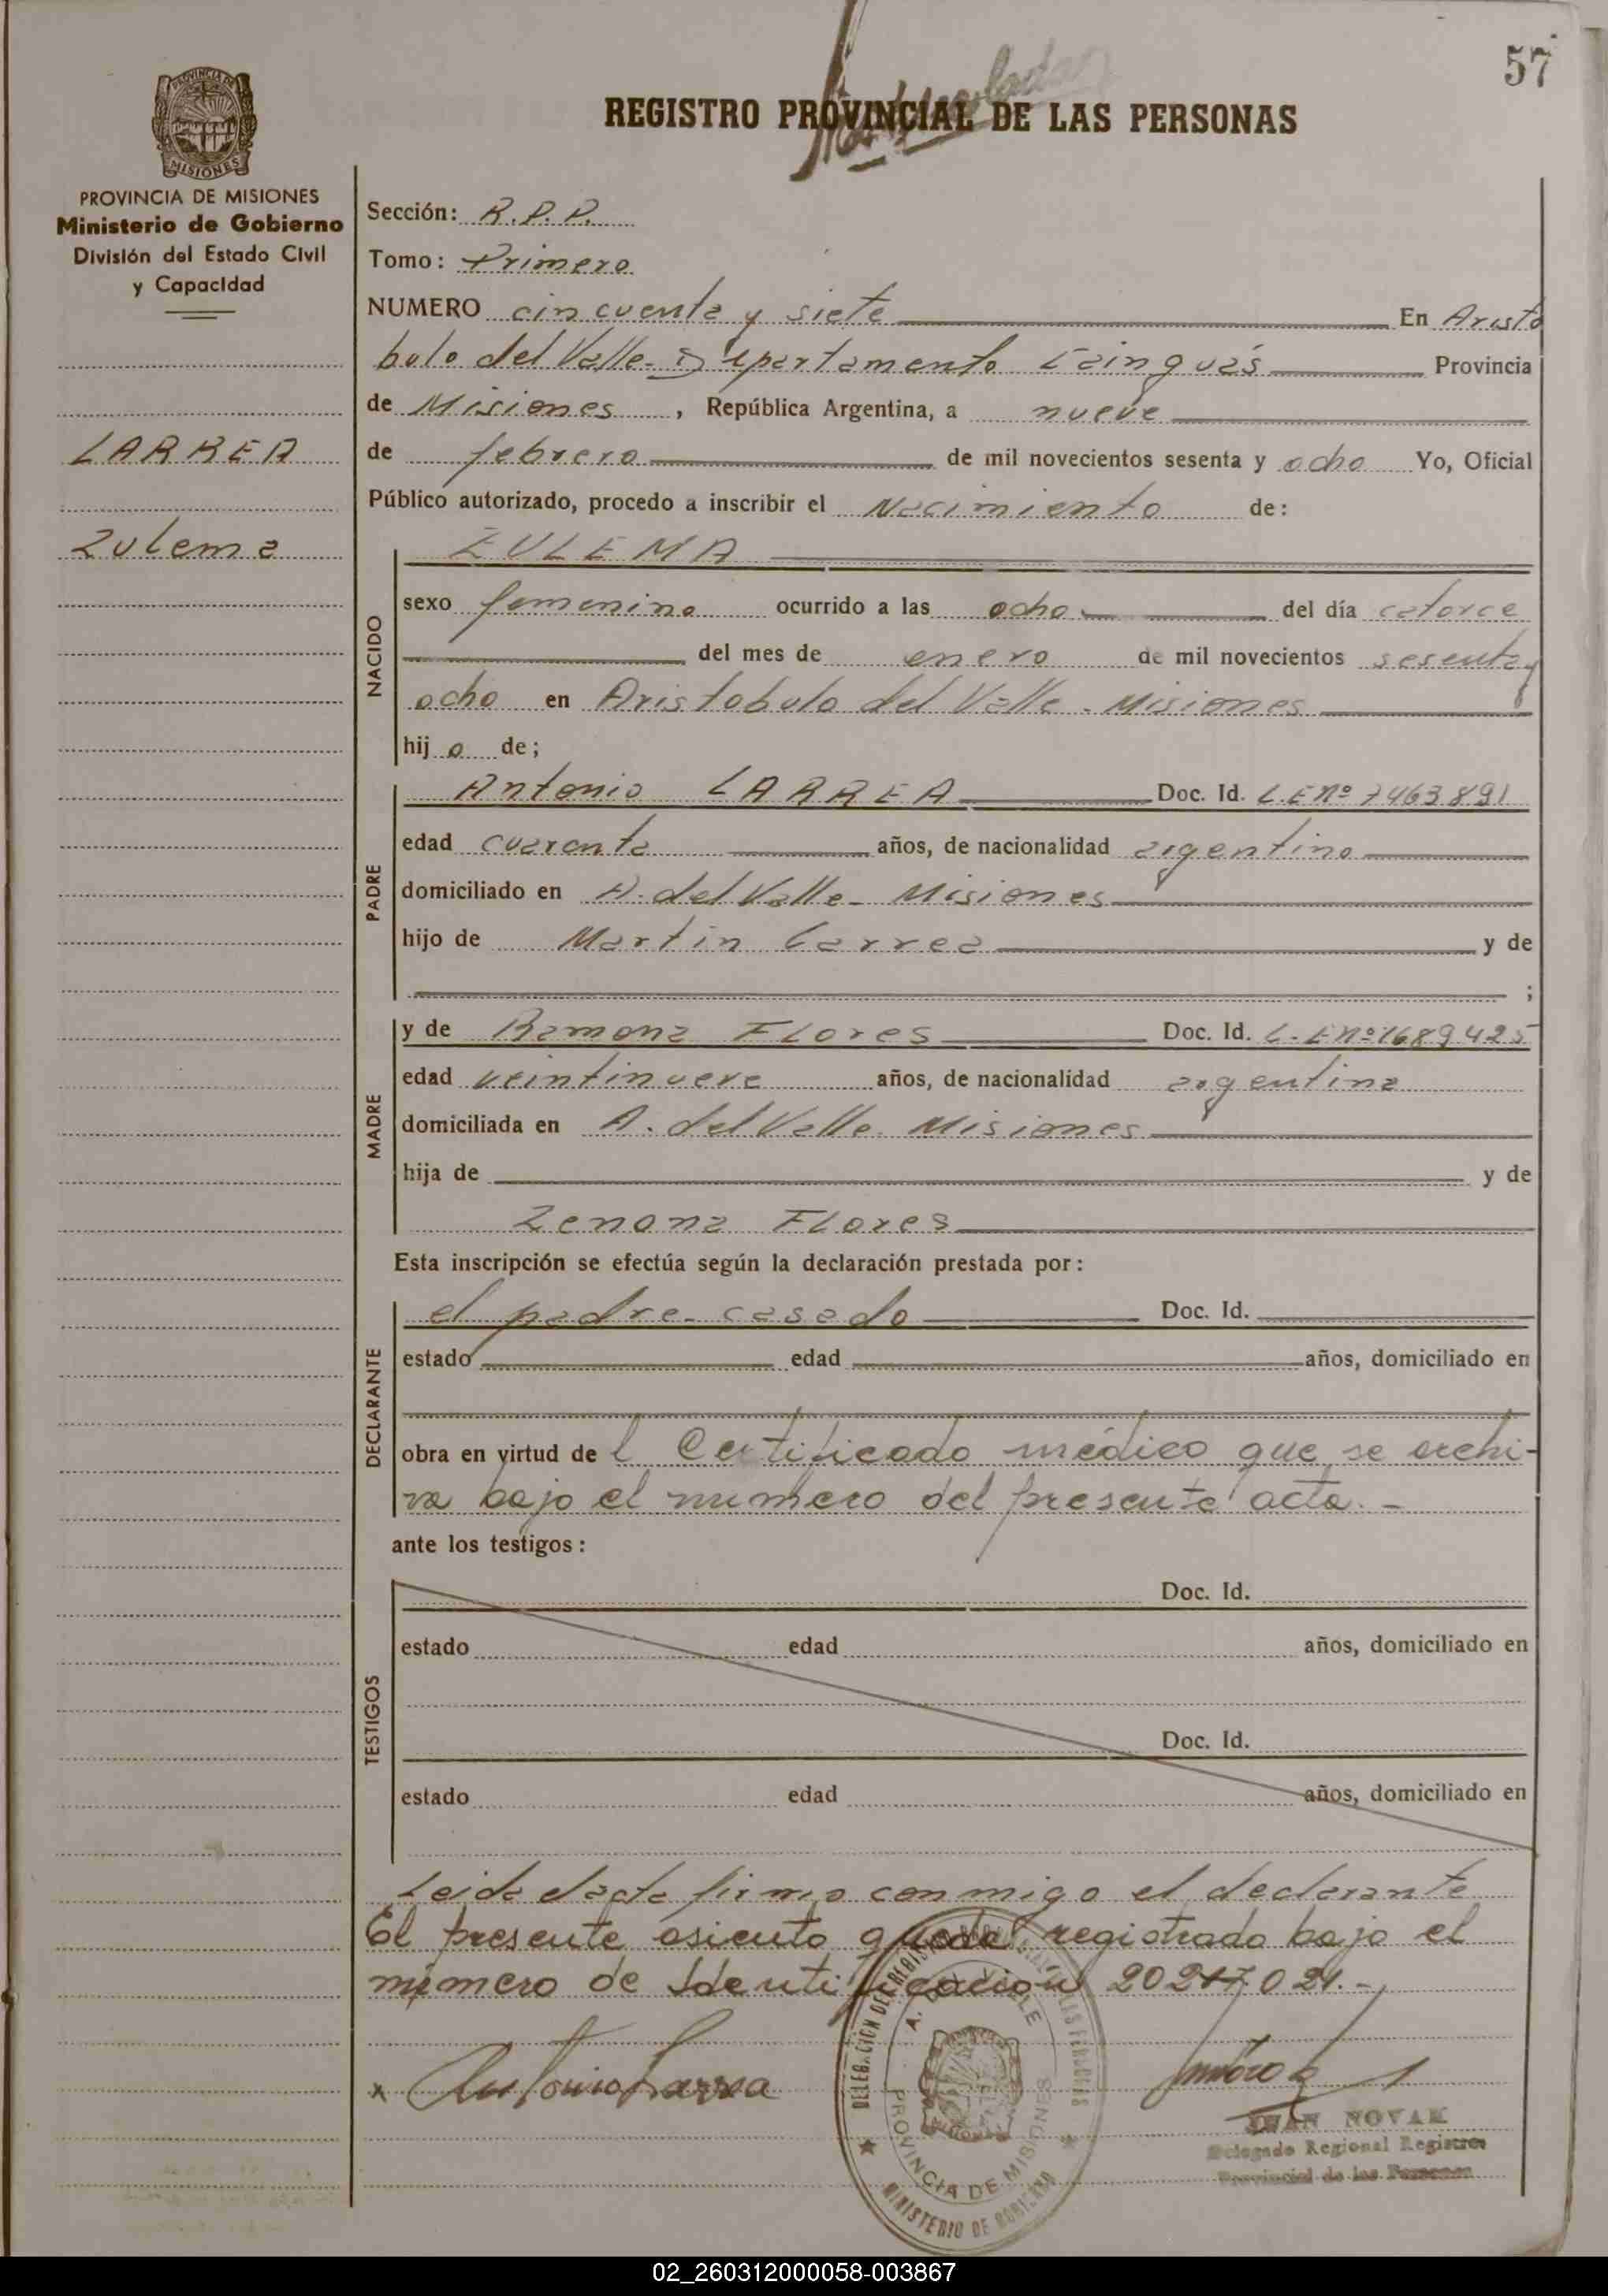 57
REGISTRO PROVINCIAL DE LAS PERSONAS
PROVINCIA DE
MISIONES
PROVINCIA DE MISIONES
Ministerio de Gobierno
División del Estado Civil
y Capacidad
LARREA
Zulema
Sección: R.P.P.
Tomo: Primero
NUMERO cincuenta y siete En Aristó
bulo del Valle - Departamento Cainguás Provincia
de Misiones, República Argentina, a nueve
de febrero de mil novecientos sesenta y ocho Yo, Oficial
Público autorizado, procedo a inscribir el Nacimiento de:
NACIDO
ZULEMA
sexo femenino ocurrido a las ocho del día catorce
del mes de enero de mil novecientos sesenta y
ocho en Aristobulo del Valle - Misiones
hij a de;
PADRE
Antonio LARREA Doc. Id. L.E Nº 7463891
edad cuarenta años, de nacionalidad argentino
domiciliado en A. del Valle - Misiones
hijo de Martin Larrea y de
;
MADRE
y de Ramona FLores Doc. Id. L.E Nº 1689425
edad veintinueve años, de nacionalidad argentina
domiciliada en A. del Valle. Misiones
hija de y de
Zenona FLores
Esta inscripción se efectúa según la declaración prestada por:
DECLARANTE
el padre - casado Doc. Id.
estado edad años, domiciliado en
obra en virtud del Certificado médico que se archi-
va bajo el numero del presente acta. -
ante los testigos:
TESTIGOS
Doc. Id.
estado edad años, domiciliado en
Doc. Id.
estado edad años, domiciliado en
Leida el acta firma conmigo el declarante
El presente asiento queda registrado bajo el
número de Identificación 20217021.-
x Antonio Larrea
DELEGACIÓN DE REGISTRO PROVINCIAL DE LAS PERSONAS
A. DEL VALLE
PROVINCIA DE MISIONES
MINISTERIO DE GOBIERNO
JUAN NOVAK
Delegado Regional Registro
Provincial de las Personas
02_260312000058-003867